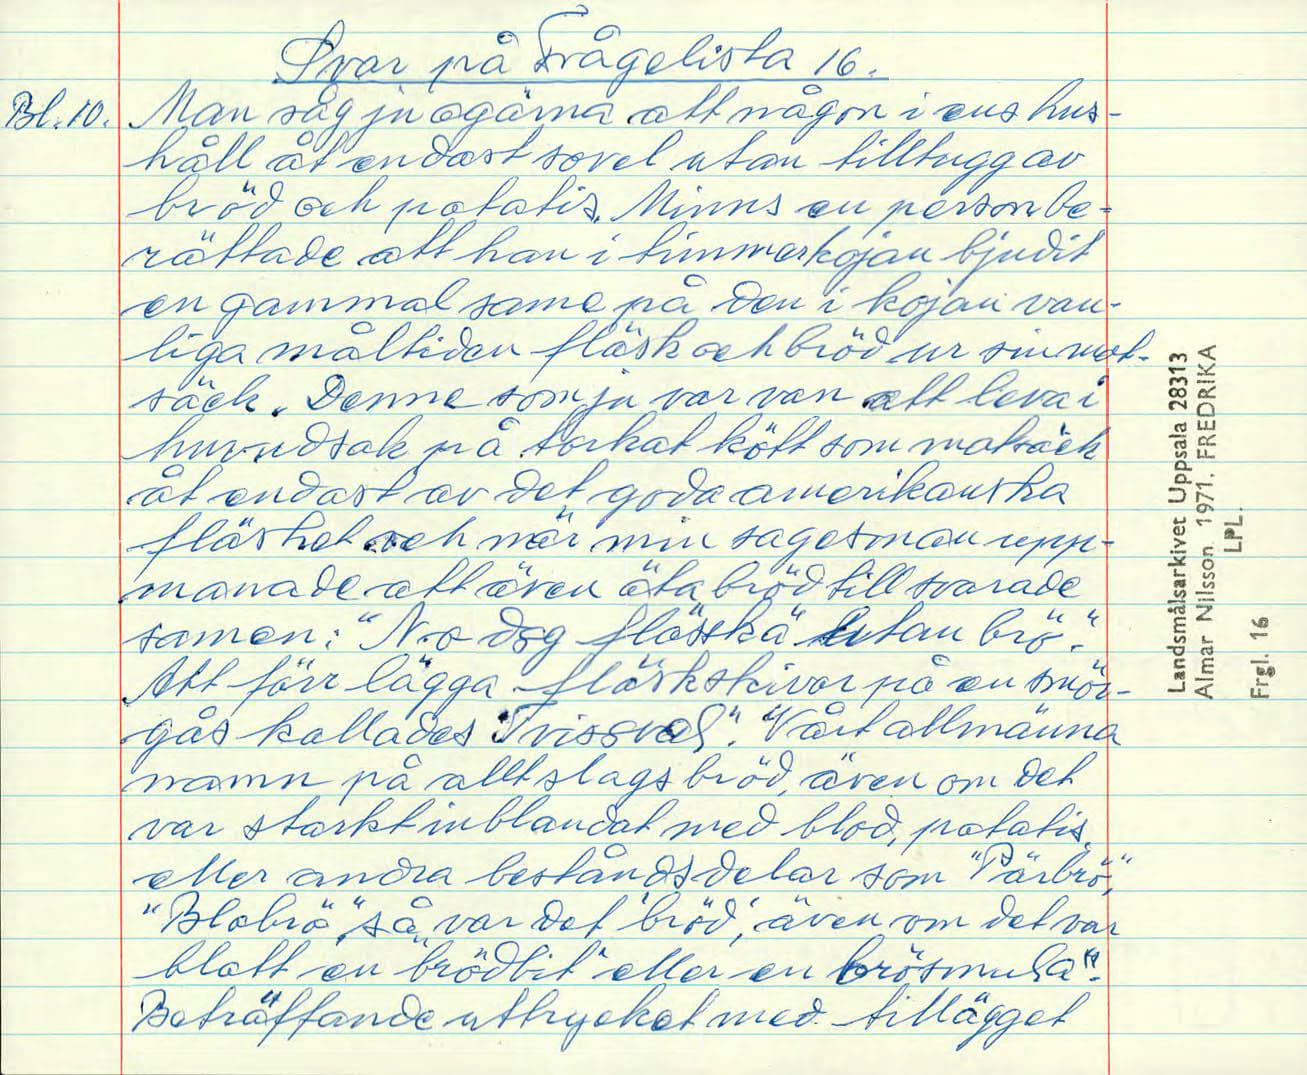 Svar på Frågelista 16.
Bl. 10. Man såg ju ogärna att någon i ens hus-
håll åt endast sovel utan tilltugg av
bröd och potatis. Minns en person be-
rättade att han i timmerkojan bjudit
en gammal same på den i kojan van-
liga måltiden fläsk och bröd ur sin mat-
säck. Denne som ju var van att leva i
huvudsak på torkat kött som matsäck
åt endast av det goda amerikanska
fläsket och när min sagesman upp-
manade att även äta bröd till svarade
samen: "No dog flässkä utan brö".
Att förr lägga fläskskivor på en smör-
gås kallades "Tvissvel". Vårt allmänna
namn på allt slags bröd, även om det
var starkt inblandat med blod, potatis
eller andra beståndsdelar som "Pärbrö",
"Blobrö", så var det "bröd", även om det var
blott en "brödbit" eller en "brösmula".
Beträffande uttrycket med tillägget
Landsmålsarkivet Uppsala 28313
Almar Nilsson. 1971. FREDRIKA
LPL.
Frgl. 16